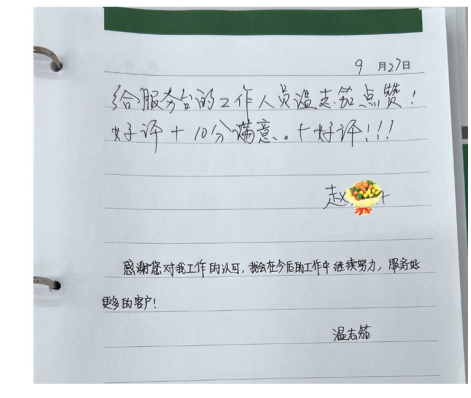 9月27日
给服务台的工作人员温志筘点赞!
好评+10分满意。+好评!!!
赵
感谢您对我工作的认可,我会在今后的工作中继续努力,服务好
更多的客户!
温志筘